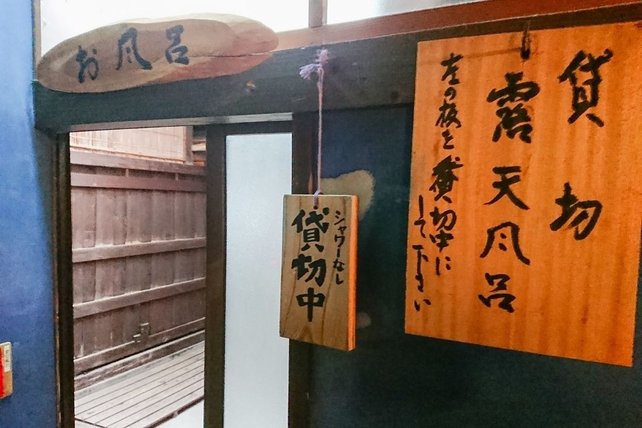 お風呂
シャワーなし
貸切中
貸切
露天風呂
左の板を貸切中に
して下さい